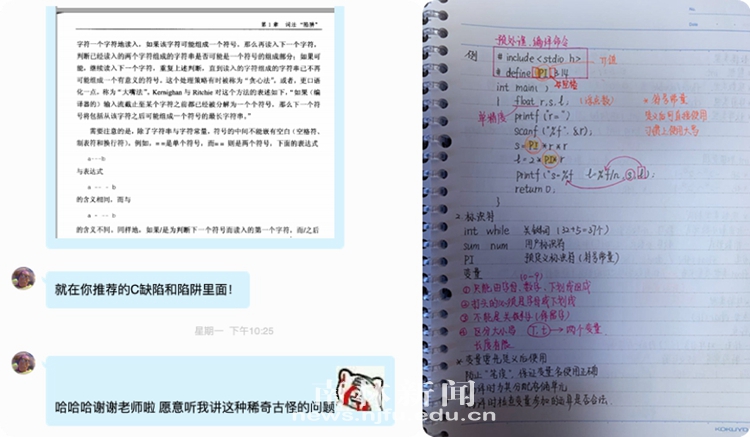 第1章 词法“陷阱”
字符一个字符地读入，如果该字符可能组成一个符号，那么再读入下一个字符，
判断已经读入的两个字符组成的字符串是否可能是一个符号的组成部分；如果可
能，继续读入下一个字符，重复上述判断，直到读入的字符组成的字符串已不再
可能组成一个有意义的符号。这个处理策略有时被称为“贪心法”，或者，更口语
化一点，称为“大嘴法”。Kernighan 与 Ritchie 对这个方法的表述如下，“如果（编
译器的）输入流截止至某个字符之前都已经被分解为一个个符号，那么下一个符
号将包括从该字符之后可能组成一个符号的最长字符串。”
需要注意的是，除了字符串与字符常量，符号的中间不能嵌有空白（空格符、
制表符和换行符）。例如，==是单个符号，而= =则是两个符号，下面的表达式
a---b
与表达式
a -- - b
的含义相同，而与
a - -- b
的含义不同。同样地，如果/是为判断下一个符号而读入的第一个字符，而/之后
就在你推荐的C缺陷和陷阱里面！
星期一 下午10:25
哈哈哈谢谢老师啦 愿意听我讲这种稀奇古怪的问题
预处理、编译命令
例
# include <stdio.h>
# define PI 3.14
int main()
{ float r,s,l;
单精度
printf("r=")
scanf("%f", &r);
s=PI*r*r
l=2*PI*r
return 0;
}
符号常量
2. 标识符
int while 关键词 (32+5=37个)
sum num 用户标识符
PI 预定义标识符 (符号常量)
变量
(0-9)
① 只能由字母、数字、下划线组成
④ 区分大小写 (T,t) → 两个变量
长度有限
南林新闻
news.njfu.edu.cn
KOKUYO